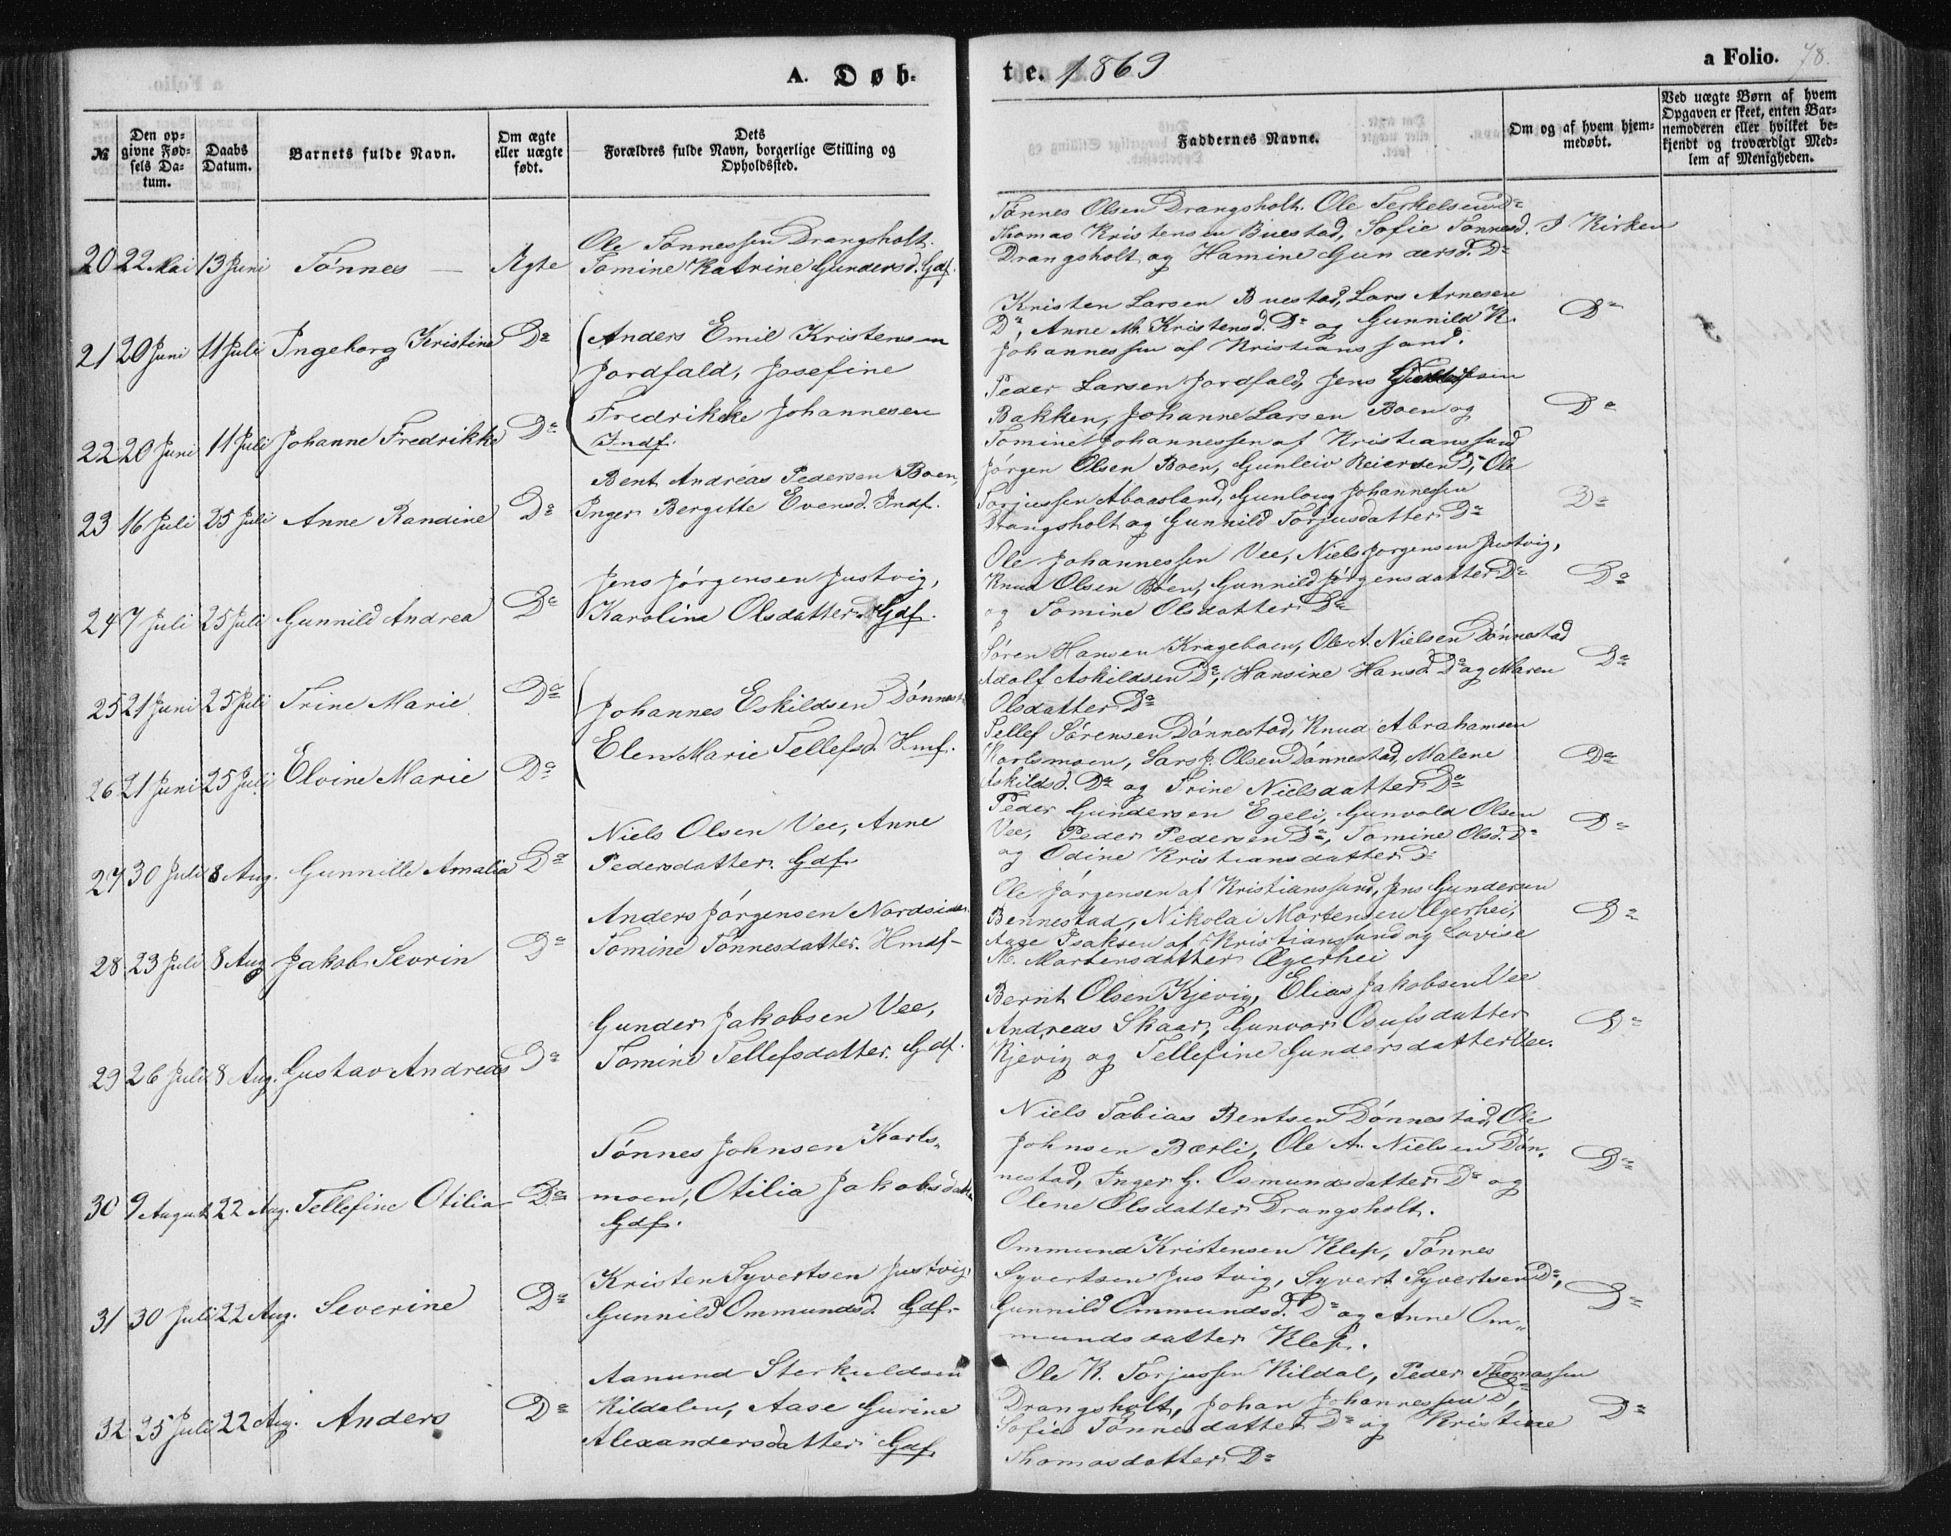 A. Døb-
te. 1869
a Folio. 78.
№
Den op-
givne Fød-
sels Da-
tum.
Daabs
Datum.
Barnets fulde Navn.
Om ægte
eller uægte
født.
Dets
Forældres fulde Navn, borgerlige Stilling og
Opholdssted.
Faddernes Navne.
Om og af hvem hjem-
medøbt.
Ved uægte Børn af hvem
Opgaven er skeet, enten Bar-
nemoderen eller hvilket be-
kjendt og troværdigt Med-
lem af Menigheden.
20 22 Mai 13 Juni Tønnes Ægte
Ole Tønnessen Drangsholt.
Tomine Katrine Gundersd. Gdf.
Tønnes Olsen Drangsholt. Ole Terkelsen Do
Thomas Kristensen Buestad, Sofie Tønnesd.
Drangsholt og Hamine Gundersd. Do
I Kirken
21 20 Juni 11 Juli Ingeborg Kristine Do
Anders Emil Kristensen
Jordfald, Josefine
Kristen Larsen Buestad, Lars Arnesen
Do, Anne M. Kristensd. Do og Gunnild K.
Johannessen af Kristianssand.
Do
22 20 Juni 11 Juli Johanne Fredrikke Do
Fredrikke Johannesen
Indf.
Peder Larsen Jordfald, Jens
Bakken, Johanne Larsen Boen og
Tomine Johannessen af Kristianssand
Do
23 16 Juli 25 Juli Anne Randine Do
Bent Andreas Pedersen Boen,
Inger Bergitte Evensd. Indf.
Jørgen Olsen Boen, Gunleiv Reiersen Do, Ole
Torjussen Abaasland, Gunloug Johannessen
Drangsholt og Gunnild Torjusdatter Do
Do
24 7 Juli 25 Juli Gunnild Andrea Do
Jens Jørgensen Justvig,
Karolina Olsdatter Gdf.
Ole Johannessen Vee, Niels Jørgensen Justvig,
Knud Olsen Boen, Gunnild Jørgensdatter Do
og Tomine Olsdatter Do
Do
25 21 Juni 25 Juli Trine Marie Do
Johannes Eskildsen Dønnest.
Søren Hansen Krageboen, Ole A. Nielsen Dønnestad
Adolf Askildsen Do, Hansine Hansd. Do og Maren
Olsdatter Do
Do
26 21 Juni 25 Juli Elvine Marie Do
Elen Marie Tellefsd. Hmf.
Tellef Sørensen Dønnestad, Knud Abrahamsen
Karlsmoen, Lars J. Olsen Dønnestad, Malene
Askildsd. Do og Trine Nielsdatter Do
Do
27 30 Juli 8 Aug. Gunnille Amalia Do
Niels Olsen Vee, Anne
Pedersdatter. Gdf.
Peder Gundersen Egeli, Gunvald Olsen
Vee, Peder Pedersen Do, Tomine Olsd. Do
og Odine Kristiansdatter Do
Do
28 23 Juli 8 Aug Jakob Sevrin Do
Anders Jørgensen Nordsiden
Tomine Tønnesdatter. Hmdf-
Ole Jørgensen af Kristianssand, Jens Gundersen
Bennestad, Nikolai Mortensen Ægerhei,
Aage Isaksen af Kristianssand og Lovise
M. Mortensdatter Ægerhei
Do
29 26 Juli 8 Aug. Gustav Andreas Do
Gunder Jakobsen Vee,
Tomine Tellefsdatter. Gdf.
Bernt Olsen Kjevig, Elias Jakobsen Vee
Andreas Skaar, Gunvor Osufsdatter
Kjevig og Tellefine Gundersdatter Vee.
Do
30 9 August 22 Aug. Tellefine Otilia Do
Tønnes Johnsen Karls-
moen, Otilia Jakobsdatter
Gdf.
Niels Tobias Bentsen Dønnestad, Ole
Johnsen Bærli, Ole A. Nielsen Døn-
nestad, Inger G. Osmundsdatter Do og
Olene Olsdatter Drangsholt.
Do
31 30 Juli 22 Aug. Severine Do
Kristen Syvertsen Justvig,
Gunnild Ommundsd. Gdf.
Ommund Kristensen Klep, Tønnes
Syvertsen Justvig, Syvert Syvertsen Do,
Gunnild Ommundsd. Do og Anne Om-
mundsdatter Klep.
Do
32 25 Juli 22 Aug. Anders Do
Aanund Sterkuldsen
Kildalen, Aase Gurine
Alexandersdatter Gdf
Ole K. Torjussen Kildal, Peder Thomassen
Drangsholt, Johan Johannessen Do,
Sofie Tønnesdatter Do og Kristine
Thomasdatter Do
Do